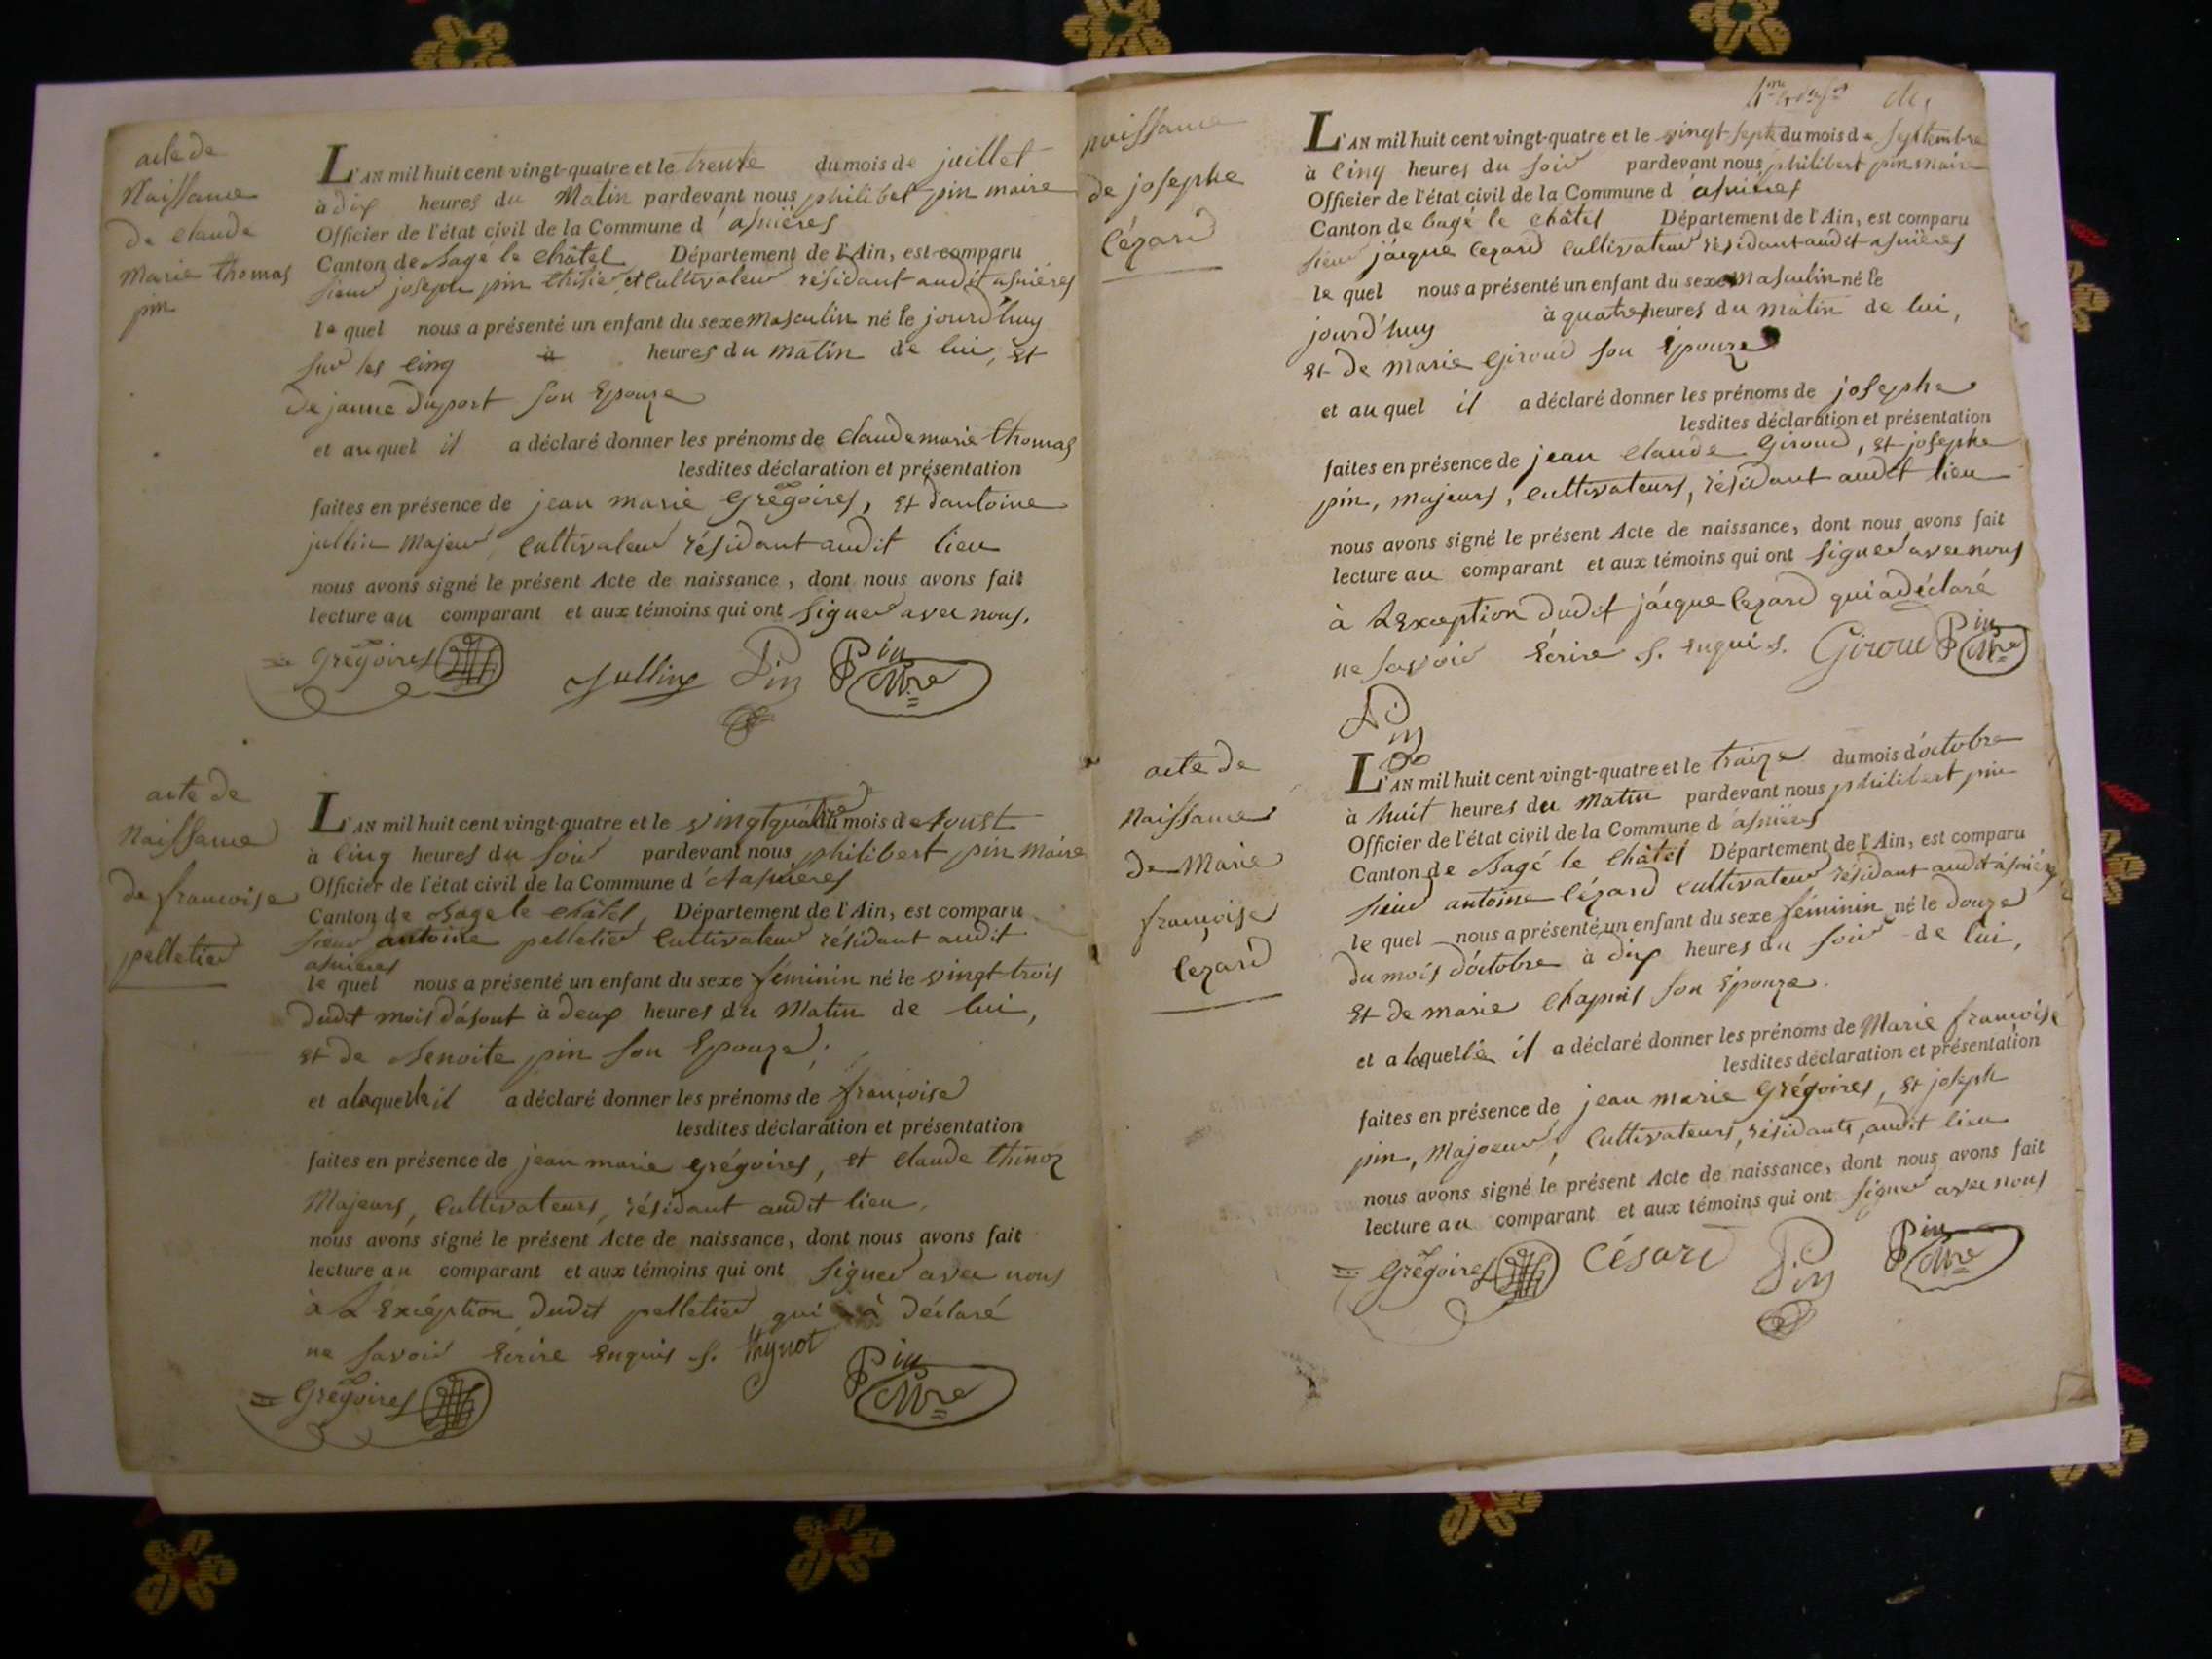 acte de
Naissance
de claude
Marie thomas
pin
L'AN mil huit cent vingt-quatre et le trente du mois de juillet
à dix heures du Matin pardevant nous philibet pin maire
Officier de l'état civil de la Commune d'asnières
Canton de Bagé le Châtel Département de l'Ain, est comparu
sieur joseph pin et Cultivateur résidant audit asnières
le quel nous a présenté un enfant du sexe masculin né le jourd'huy
sur les cinq à heures du matin de lui, et
de janne Duport son Epouze
et au quel il a déclaré donner les prénoms de Claude marie thomas
lesdites déclaration et présentation
faites en présence de jean marie Grégoires, et d'antoine
jullin Majeur Cultivateur résidant audit lieu
nous avons signé le présent Acte de naissance, dont nous avons fait
lecture au comparant et aux témoins qui ont signer avec nous.
Grégoires Jullin Pin Pin Mre
acte de
Naissance
de francoise
pelletier
L'AN mil huit cent vingt-quatre et le vingt quatre du mois de Aoust
à cinq heures du soir pardevant nous philibert pin Maire
Officier de l'état civil de la Commune d'Asnieres
Canton de Bage le Châtel, Département de l'Ain, est comparu
sieur antoine pelletier Cultivateur résidant audit
asnieres
le quel nous a présenté un enfant du sexe féminin né le vingt-trois
dudit mois d'aSout à deux heures du Matin de lui,
et de Benoite pin son Epouze,
et a laquelle il a déclaré donner les prénoms de françoise
lesdites déclaration et présentation
faites en présence de jean marie grégoires, et Claude thinoz
Majeurs, Cultivateurs, résidant audit lieu,
nous avons signé le présent Acte de naissance, dont nous avons fait
lecture au comparant et aux témoins qui ont signer avec nous
à L'Exéption dudit pelletier qui à déclaré
ne savoir Ecrire Enquis S. thynot Pin Mre
Grégoires
naissance
de josephe
Cézard
L'AN mil huit cent vingt-quatre et le vingt-septe du mois de Septtembre
à cinq heures du soir pardevant nous philibert pin maire
Officier de l'état civil de la Commune d'asnieres
Canton de bagé le Châtel Département de l'Ain, est comparu
sieur jàcque Cezard Cultivateur résidant audit asnieres
le quel nous a présenté un enfant du sexe Masculin né le
jourd'huy à quatre heures du matin de lui,
et de marie Giroud son Epouze
et au quel il a déclaré donner les prénoms de josephe
lesdites déclaration et présentation
faites en présence de jean Claude Giroud, et josephe
pin, majeurs, Cultivateurs, résidant audit lieu
nous avons signé le présent Acte de naissance, dont nous avons fait
lecture au comparant et aux témoins qui ont signer avec nous
à L'Exception dudit jàcque Cezard qui a déclaré
ne savoir Ecrire S. Enquis. Giroud Pin Mre
Pin
acte de
Naissance
de Marie
françoise
Cezard
L'AN mil huit cent vingt-quatre et le traize du mois d'octobre
à huit heures du Matin pardevant nous philibert pin
Officier de l'état civil de la Commune d'asnieres
Canton de Bagé le Châtel Département de l'Ain, est comparu
sieur antoine Cézard cultivateur résidant audit asnières
le quel nous a présenté un enfant du sexe féminin né le douze
du mois d'octobre à dix heures du soir de lui,
et de marie Chapuis son Epouze.
et a laquelle il a déclaré donner les prénoms de Marie françoise
lesdites déclaration et présentation
faites en présence de jean marie Grégoires, et joseph
pin, Majoeur, Cultivateurs, résidants, audit lieu
nous avons signé le présent Acte de naissance, dont nous avons fait
lecture au comparant et aux témoins qui ont signer avec nous
Grégoires CéSard Pin Pin Mre